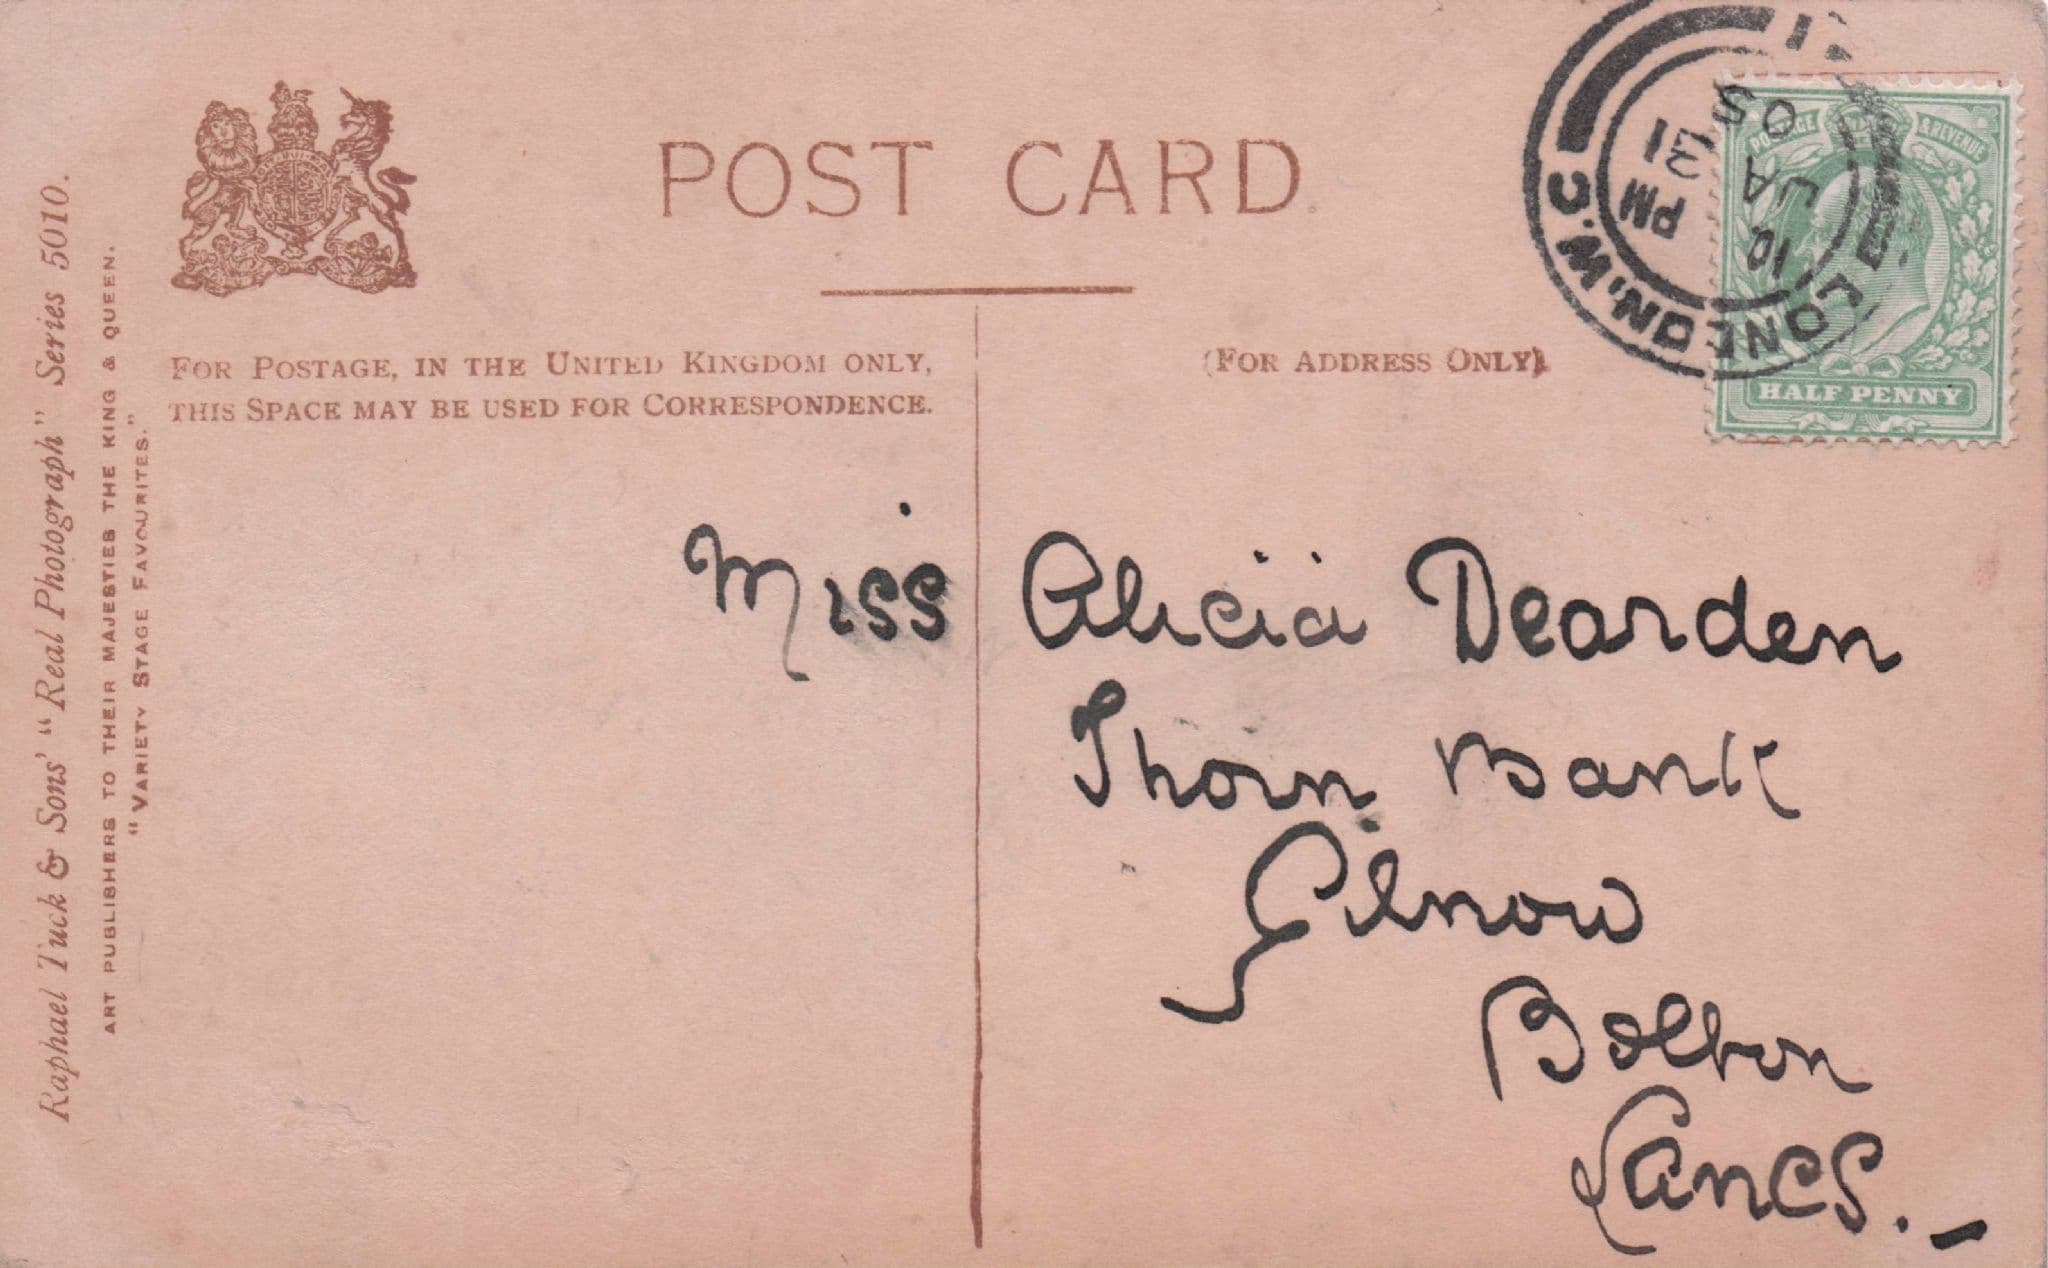 POST CARD
FOR POSTAGE, IN THE UNITED KINGDOM ONLY,
THIS SPACE MAY BE USED FOR CORRESPONDENCE.
(FOR ADDRESS ONLY)
Raphael Tuck & Sons' "Real Photograph" Series 5010.
ART PUBLISHERS TO THEIR MAJESTIES THE KING & QUEEN.
"VARIETY STAGE FAVOURITES."
LONDON. W.C.
10 PM
JA 31
05
POSTAGE & REVENUE
HALF PENNY
Miss Alicia Dearden
Thorn Bank
Gilnow
Bolton
Lancs.